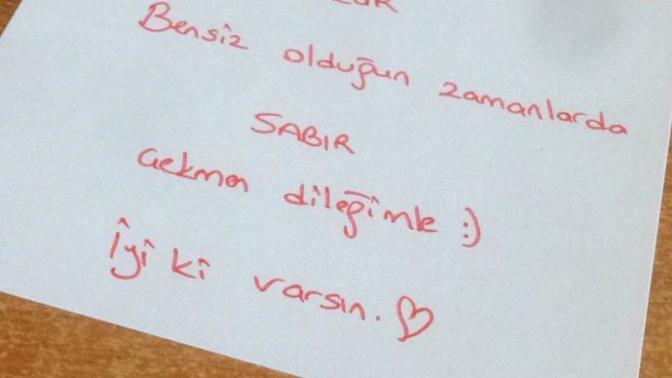 Bensiz olduğun zamanlarda
SABIR
Çekmen dileğimle :)
İyi ki varsın. ♡